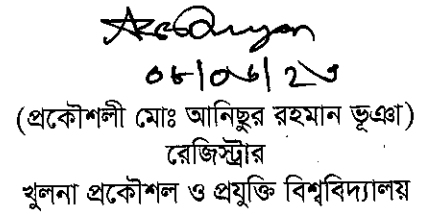 ০৮/০৬/২৩
(প্রকৌশলী মোঃ আনিছুর রহমান ভূঞা)
রেজিস্ট্রার
খুলনা প্রকৌশল ও প্রযুক্তি বিশ্ববিদ্যালয়